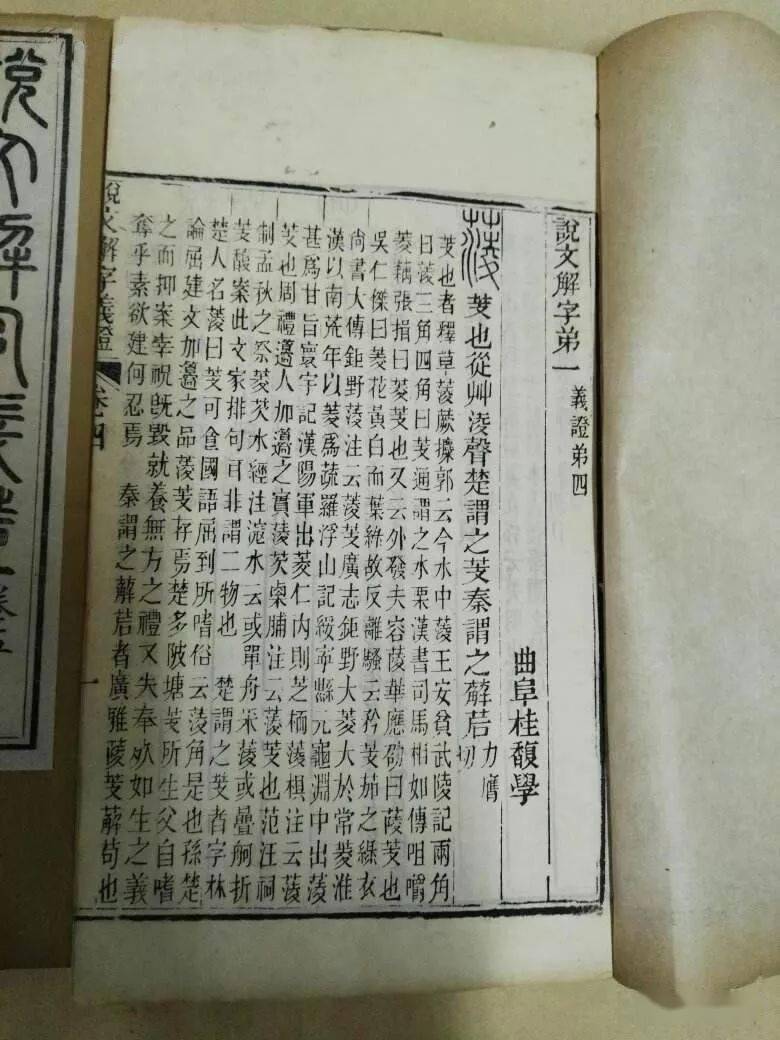 說文解字弟一
義證弟四
曲阜桂馥學
蔆
芰也從艸淩聲楚謂之芰秦謂之薢茩
力膺切
芰也者釋草蔆蕨攗郭云今水中蔆王安貧武陵記兩角
曰蔆三角四角曰芰通謂之水栗漢書司馬相如傳咀嚼
菱藕張揖曰菱芰也又云外發夫容蔆華應劭曰蔆芰也
吳仁傑曰菱花黃白而葉綠故反離騷云衿芰茄之綠衣
尚書大傳鉅野蔆注云蔆芰廣志鉅野大菱大於常菱淮
漢以南荒年以菱爲蔬羅浮山記綏寧縣元龜淵中出蔆
甚爲甘旨寰宇記漢陽軍出菱仁內則芝栭蔆椇注云蔆
芰也周禮籩人加籩之實蔆芡㮚脯注云蔆芰也范汪祠
制孟秋之祭菱芡水經注滱水云或單舟采蔆或疊舸折
芰馥案此文家排句耳非謂二物也　楚謂之芰者字林
楚人名蔆曰芰可食國語屈到所嗜俗云蔆角是也孫楚
論屈建文加籩之品蔆芰存焉楚多陂塘芰所生父自嗜
之而抑案宰祝旣毀就養無方之禮又失奉𣦸如生之義
奪乎素欲建何忍焉　秦謂之薢茩者廣雅蔆芰薢茍也
說文解字義證
卷四
一
說文解字義證
卷五